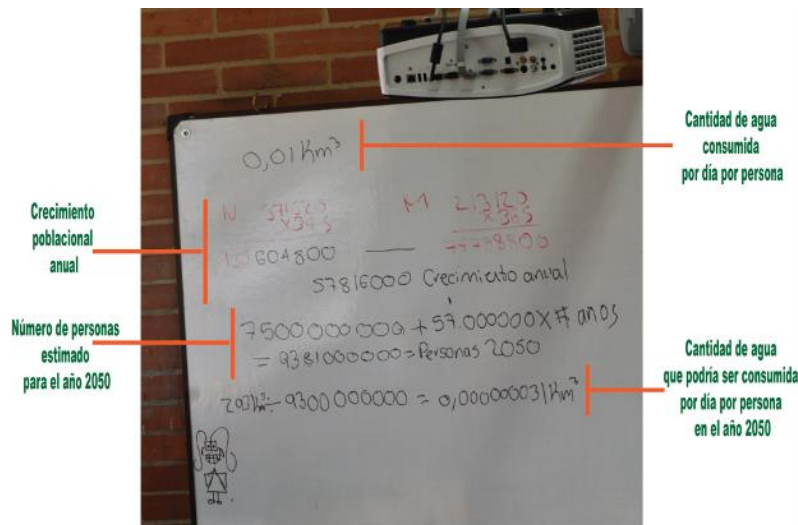 Cantidad de agua
consumida
por día por persona
0,01 Km³
Crecimiento
poblacional
anual
N M 213120
x365 x365
604800 — 77788800
57816000 Crecimiento anual
Número de personas
estimado
para el año 2050
7500000000 + 57.000000 x # años
= 9381000000 = Personas 2050
Cantidad de agua
que podría ser consumida
por día por persona
en el año 2050
293 Km³ ÷ 9300000000 = 0,000000031 Km³